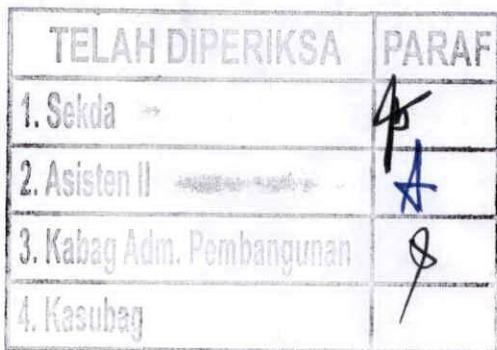 TELAH DIPERIKSA PARAF
1. Sekda
2. Asisten II
3. Kabag Adm. Pembangunan
4. Kasubag